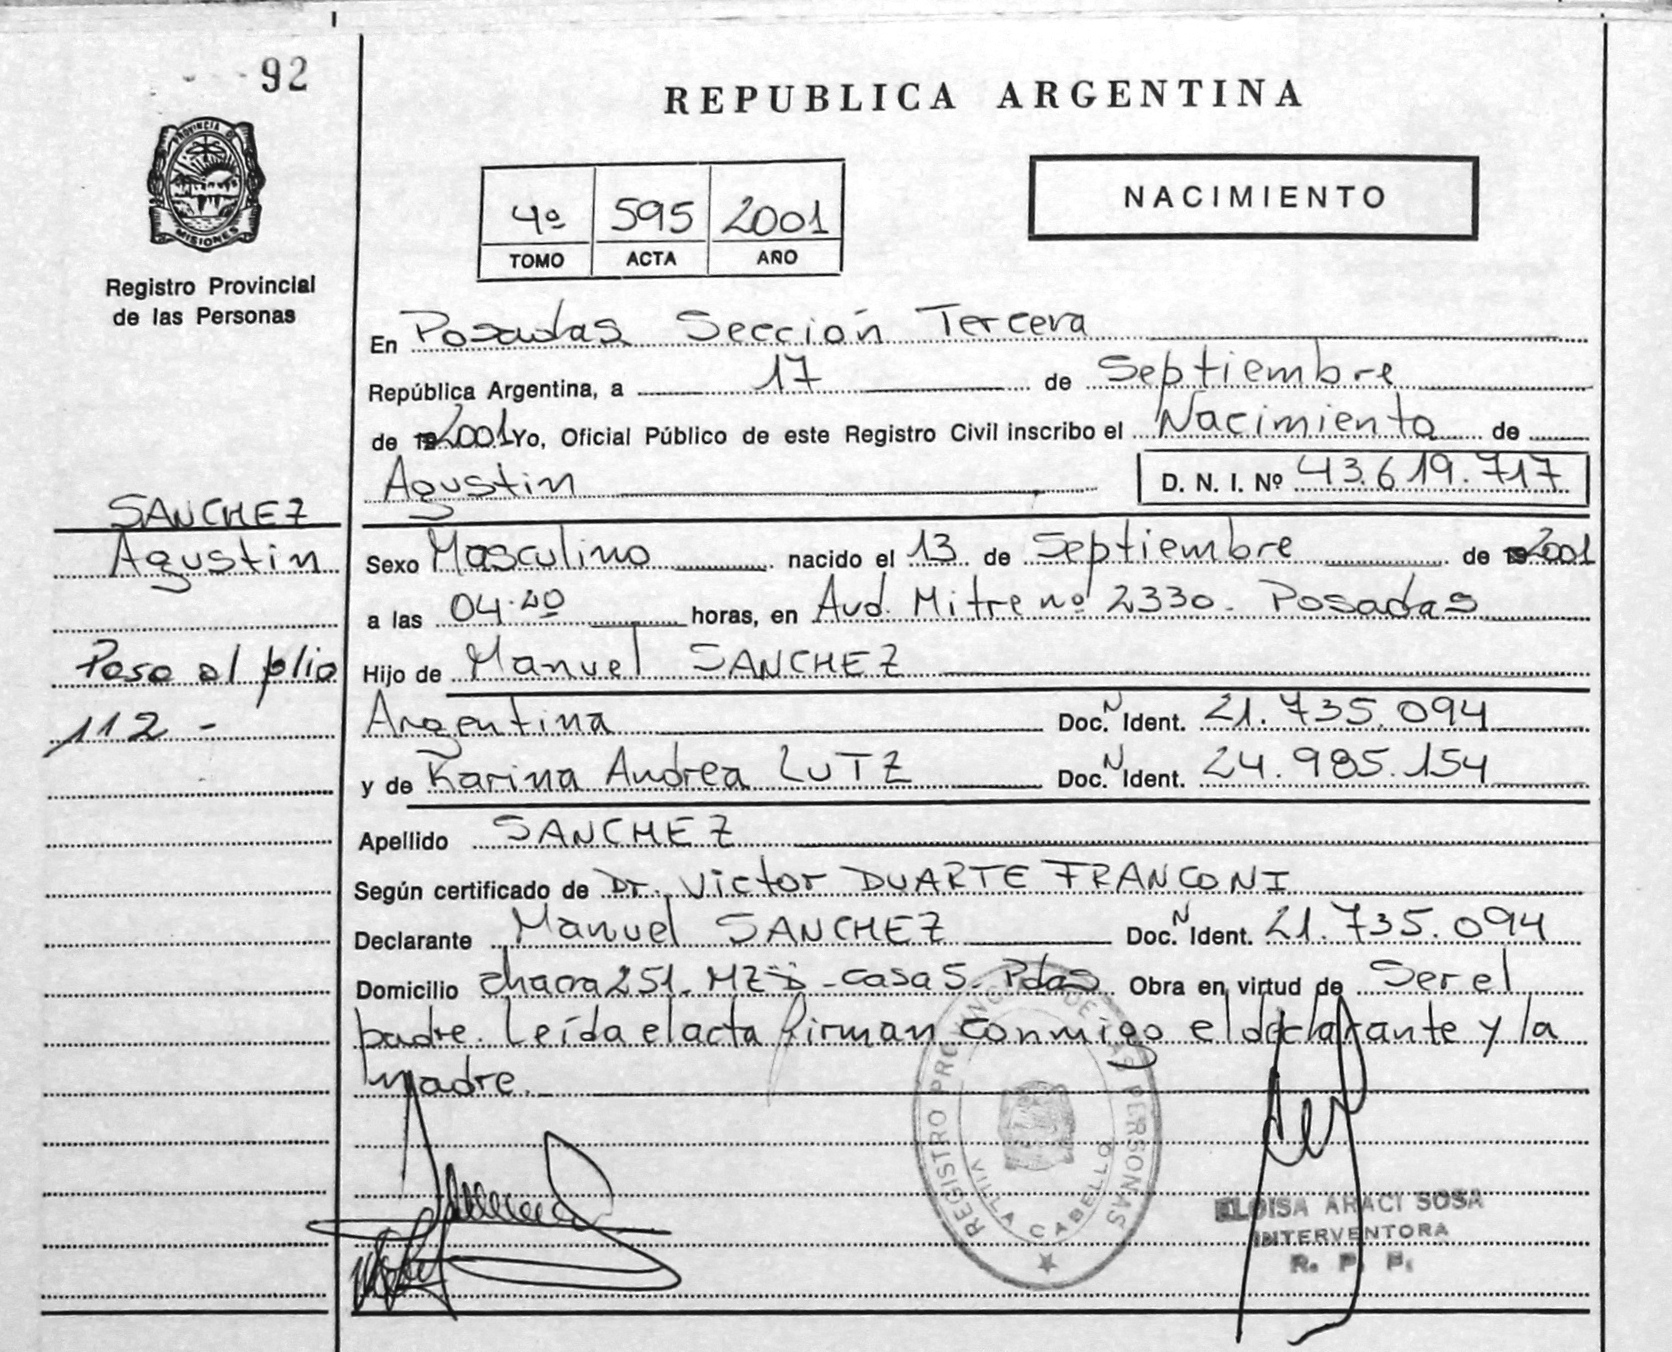 92
PROVINCIA DE
MISIONES
Registro Provincial
de las Personas
REPUBLICA ARGENTINA
4º 595 2001
TOMO ACTA AÑO
NACIMIENTO
En Posadas Sección Tercera
República Argentina, a 17 de Septiembre
de 2001 Yo, Oficial Público de este Registro Civil inscribo el Nacimiento de
Agustin D. N. I. Nº 43.619.717
SANCHEZ
Agustin
Pase al folio
112 -
Sexo Masculino nacido el 13 de Septiembre de 2001
a las 04. horas, en Avd. Mitre nº 2330. Posadas
Hijo de Manuel SANCHEZ
Argentina Doc. N Ident. 21.735.094
y de Karina Andrea LUTZ Doc. N Ident. 24.985.154
Apellido SANCHEZ
Según certificado de Dr. Victor DUARTE FRANCONI
Declarante Manuel SANCHEZ Doc. N Ident. 21.735.094
Domicilio chacra 251. MZ - casa 5. Pdas Obra en virtud de Ser el
padre. Leída el acta firman conmigo el declarante y la
madre.
REGISTRO PROVINCIAL DE LAS PERSONAS
VILLA CABELLO
ELOISA ARACI SOSA
INTERVENTORA
R. P. P.